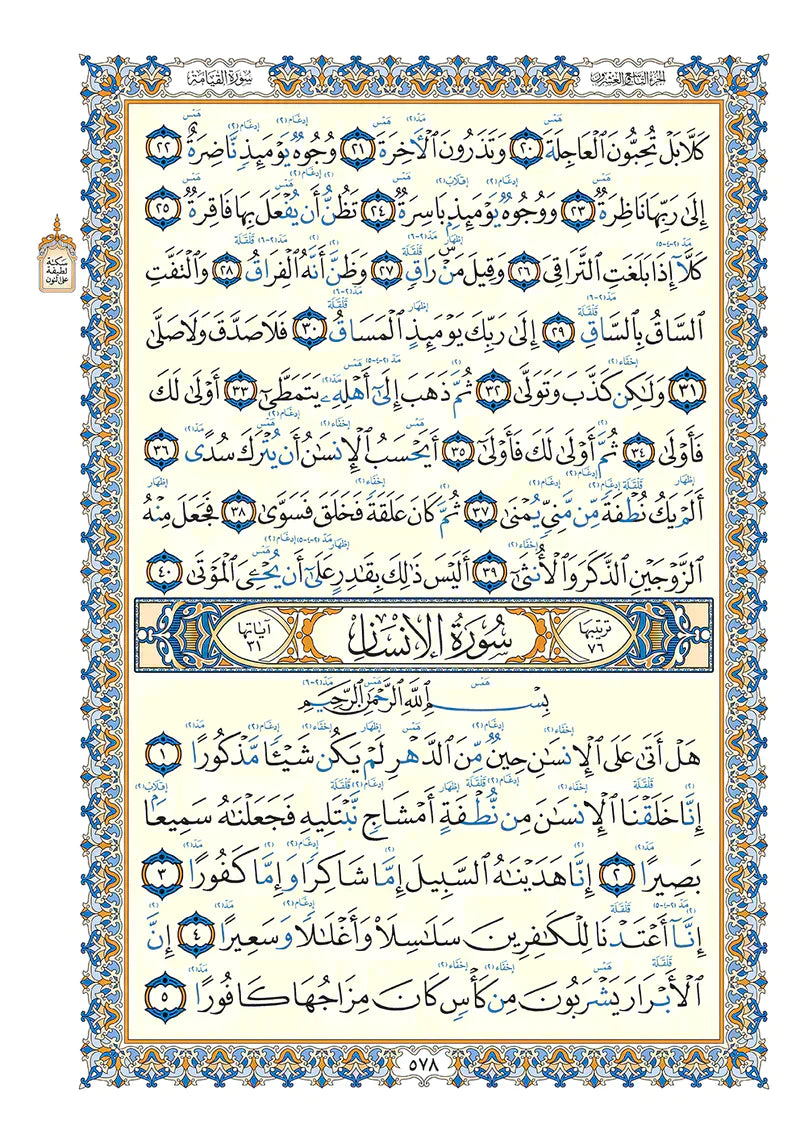 الجزء التاسع والعشرون
سورة القيامة
كَلَّا بَلْ تُحِبُّونَ ٱلْعَاجِلَةَ ٢٠ وَتَذَرُونَ ٱلْأٓخِرَةَ ٢١ وُجُوهٌ يَوْمَئِذٍ نَّاضِرَةٌ ٢٢
إِلَىٰ رَبِّهَا نَاظِرَةٌ ٢٣ وَوُجُوهٌ يَوْمَئِذٍۭ بَاسِرَةٌ ٢٤ تَظُنُّ أَن يُفْعَلَ بِهَا فَاقِرَةٌ ٢٥
كَلَّآ إِذَا بَلَغَتِ ٱلتَّرَاقِىَ ٢٦ وَقِيلَ مَنْ رَاقٍ ٢٧ وَظَنَّ أَنَّهُ ٱلْفِرَاقُ ٢٨ وَٱلْتَفَّتِ
سكتة
لطيفة
على النون
ٱلسَّاقُ بِٱلسَّاقِ ٢٩ إِلَىٰ رَبِّكَ يَوْمَئِذٍ ٱلْمَسَاقُ ٣٠ فَلَا صَدَّقَ وَلَا صَلَّىٰ
٣١ وَلَٰكِن كَذَّبَ وَتَوَلَّىٰ ٣٢ ثُمَّ ذَهَبَ إِلَىٰٓ أَهْلِهِۦ يَتَمَطَّىٰٓ ٣٣ أَوْلَىٰ لَكَ
فَأَوْلَىٰ ٣٤ ثُمَّ أَوْلَىٰ لَكَ فَأَوْلَىٰٓ ٣٥ أَيَحْسَبُ ٱلْإِنسَٰنُ أَن يُتْرَكَ سُدًى ٣٦
أَلَمْ يَكُ نُطْفَةً مِّن مَّنِىٍّ يُمْنَىٰ ٣٧ ثُمَّ كَانَ عَلَقَةً فَخَلَقَ فَسَوَّىٰ ٣٨ فَجَعَلَ مِنْهُ
ٱلزَّوْجَيْنِ ٱلذَّكَرَ وَٱلْأُنثَىٰٓ ٣٩ أَلَيْسَ ذَٰلِكَ بِقَٰدِرٍ عَلَىٰٓ أَن يُحْـِۧىَ ٱلْمَوْتَىٰ ٤٠
ترتيبها ٧٦ سُورَةُ الإِنسَانِ آياتها ٣١
بِسْمِ ٱللَّهِ ٱلرَّحْمَٰنِ ٱلرَّحِيمِ
هَلْ أَتَىٰ عَلَى ٱلْإِنسَٰنِ حِينٌ مِّنَ ٱلدَّهْرِ لَمْ يَكُن شَيْـًٔا مَّذْكُورًا ١
إِنَّا خَلَقْنَا ٱلْإِنسَٰنَ مِن نُّطْفَةٍ أَمْشَاجٍ نَّبْتَلِيهِ فَجَعَلْنَٰهُ سَمِيعًۢا
بَصِيرًا ٢ إِنَّا هَدَيْنَٰهُ ٱلسَّبِيلَ إِمَّا شَاكِرًا وَإِمَّا كَفُورًا ٣
إِنَّآ أَعْتَدْنَا لِلْكَٰفِرِينَ سَلَٰسِلَا۟ وَأَغْلَٰلًا وَسَعِيرًا ٤ إِنَّ
ٱلْأَبْرَارَ يَشْرَبُونَ مِن كَأْسٍ كَانَ مِزَاجُهَا كَافُورًا ٥
٥٧٨